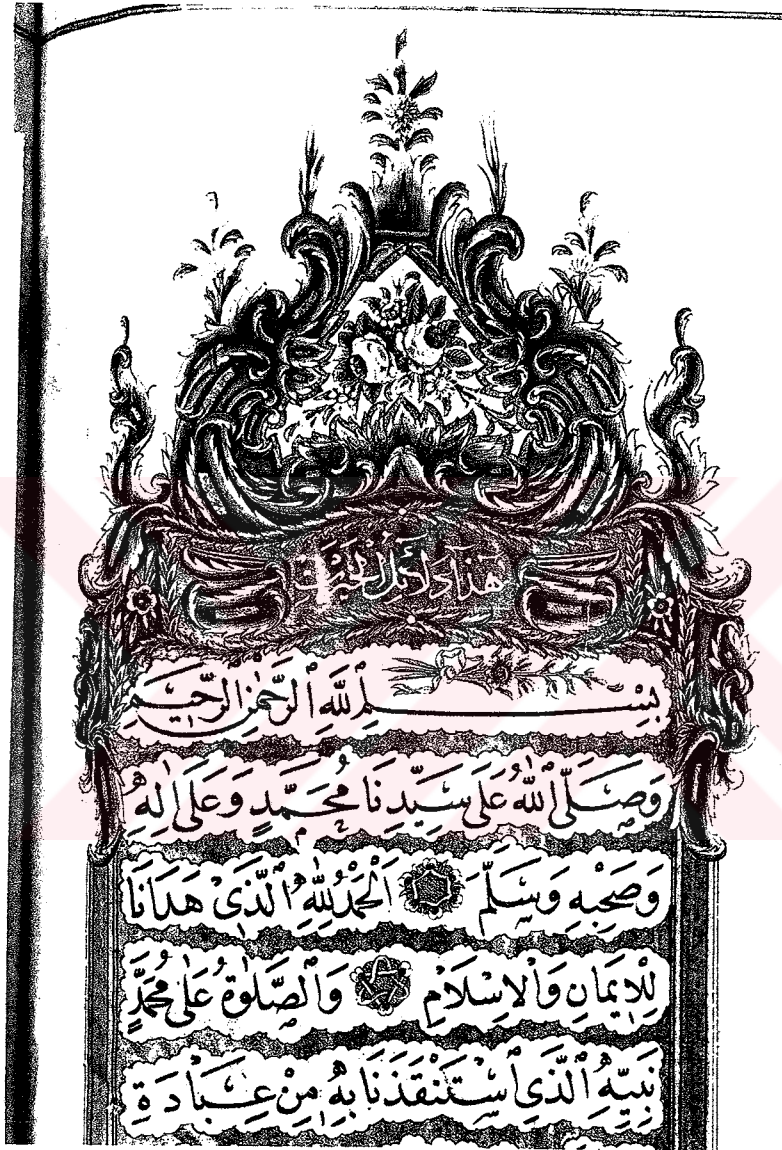 هَذَا دَلَائِلُ الْخَيْرَات
بِسْمِ اللَّهِ الرَّحْمٰنِ الرَّحِيمِ
وَصَلَّى اللّٰهُ عَلَى سَيِّدِنَا مُحَمَّدٍ وَعَلَى اٰلِهِ
وَصَحْبِهِ وَسَلَّمَ اَلْحَمْدُ لِلّٰهِ الَّذِى هَدَانَا
لِلْاِيمَانِ وَالْاِسْلَامِ وَالصَّلٰوةُ عَلٰى مُحَمَّدٍ
نَبِيِّهِ الَّذِى اسْتَنْقَذَنَا بِهِ مِنْ عِبَادَةِ